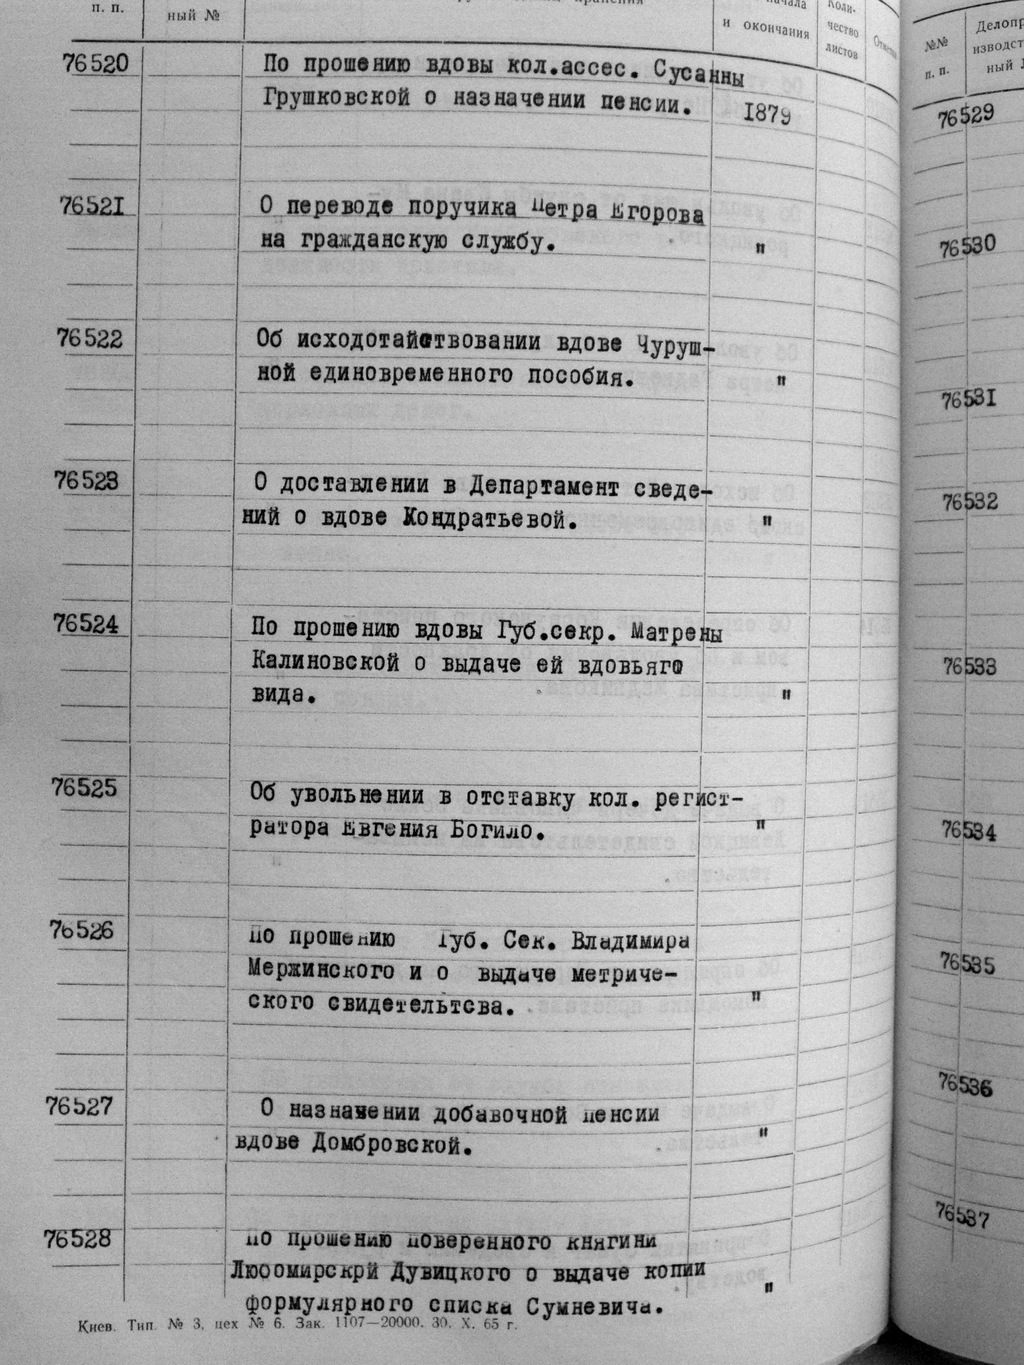 п. п.
ный №
начала
и окончания
Коли-
чество
листов
76520
По прошению вдовы кол.ассес. Сусанны
Грушковской о назначении пенсии.
1879
76521
О переводе поручика Петра Егорова
на гражданскую службу.
"
76522
Об исходотайствовании вдове Чуруш-
ной единовременного пособия.
"
76523
О доставлении в Департамент сведе-
ний о вдове Кондратьевой.
"
76524
По прошению вдовы Губ.секр. Матрены
Калиновской о выдаче ей вдовьяго
вида.
"
76525
Об увольнении в отставку кол. регист-
ратора Евгения Богило.
"
76526
По прошению Губ. Сек. Владимира
Мержинского и о выдаче метриче-
ского свидетельтсва.
"
76527
О назначении добавочной пенсии
вдове Домбровской.
"
76528
По прошению поверенного княгини
Любомирскрй Дувицкого о выдаче копии
формулярного списка Сумневича.
"
Киев. Тип. № 3, цех № 6. Зак. 1107—20000. 30. X. 65 г.
№№
п. п.
Делопр
изводст
ный
76529
76530
76531
76532
76533
76534
76535
76536
76537